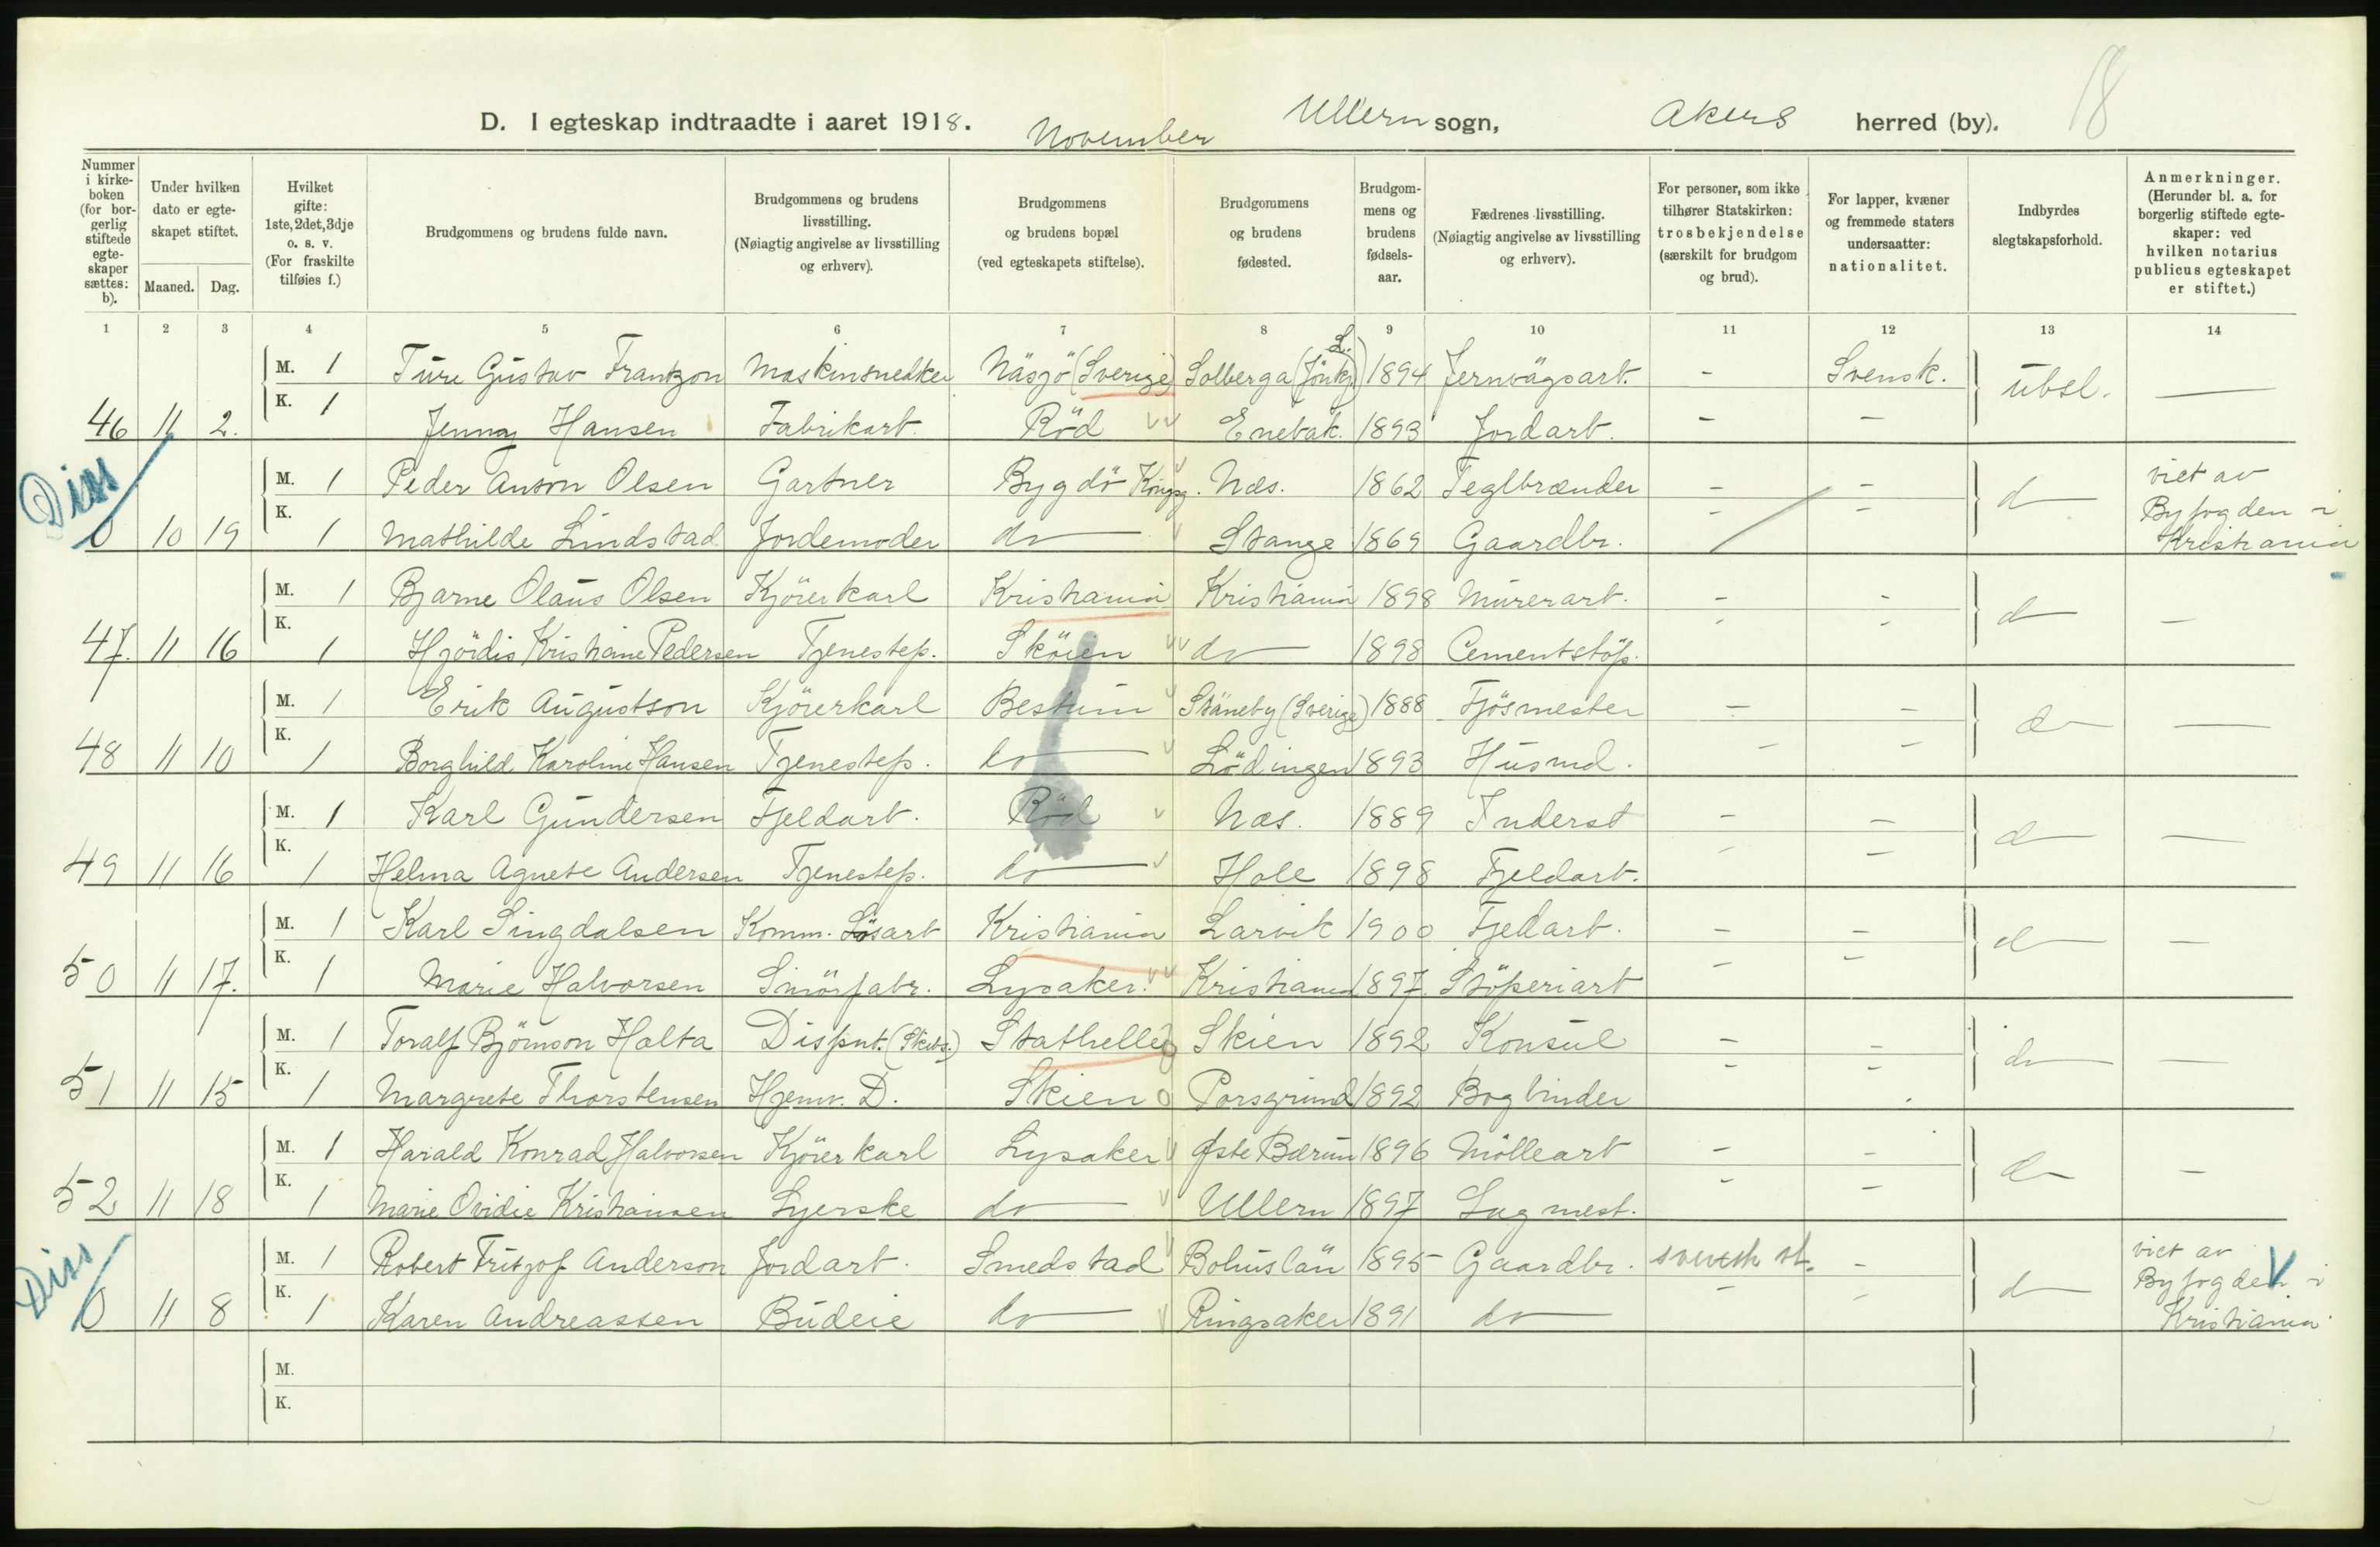 18
D. I egteskap indtraadte i aaret 1918. November Ullern sogn, Akers herred (by).
Nummer i kirke-boken (for bor-gerlig stiftede egte-skaper sættes: b).
Under hvilken dato er egte-skapet stiftet.
Maaned. Dag.
Hvilket gifte: 1ste, 2det, 3dje o. s. v. (For fraskilte tilføies f.)
Brudgommens og brudens fulde navn.
Brudgommens og brudens livsstilling. (Nøiagtig angivelse av livsstilling og erhverv).
Brudgommens og brudens bopæl (ved egteskapets stiftelse).
Brudgommens og brudens fødested.
Brudgom-mens og brudens fødsels-aar.
Fædrenes livsstilling. (Nøiagtig angivelse av livsstilling og erhverv).
For personer, som ikke tilhører Statskirken: trosbekjendelse (særskilt for brudgom og brud).
For lapper, kvæner og fremmede staters undersaatter: nationalitet.
Indbyrdes slegtskapsforhold.
Anmerkninger. (Herunder bl. a. for borgerlig stiftede egte-skaper: ved hvilken notarius publicus egteskapet er stiftet.)
1 2 3 4 5 6 7 8 9 10 11 12 13 14
M. 1 Ture Gustav Frantzon Maskinsnedker Näsjö (Sverige) Solberga (Jönkj. L.) 1894 Jernvägsart. - Svensk. ubsl. -
46 11 2. K. 1 Jenny Hansen Fabrikart. Röd Enebak. 1893 Jordart. - -
Diss
M. 1 Peder Anton Olsen Gartner Bygdö Kongsg. Næs. 1862 Teglbrænder - - d viet av
0 10 19 K. 1 Mathilde Lindstad Jordemoder do Stange 1869 Gaardbr. - - Byfogden i Kristiania
M. 1 Bjarne Olaus Olsen Kjörerkarl Kristiania Kristiania 1898 Murerart. - - d -
47. 11 16 K. 1 Hjördis Kristiane Pedersen Tjenestep. Sköien do 1898 Cementstöp. - -
M. 1 Erik Augustson Kjörerkarl Bestum Stäneby (Sverige) 1888 Fjösmester - - d -
48 11 10 K. 1 Borghild Karoline Hansen Tjenestep. do Lödingen 1893 Husmd. - -
M. 1 Karl Gundersen Fjeldart. Röd Næs. 1889 Inderst - - d -
49 11 16 K. 1 Helma Agnete Andersen Tjenestep. do Hole 1898 Fjeldart. - -
M. 1 Karl Singdalsen Komm. Lösart Kristiania Larvik 1900 Fjeldart. - - d -
50 11 17. K. 1 Marie Halvorsen Smörfabr. Lysaker. Kristiania 1897. Stöperiart - -
M. 1 Toralf Björnson Holta Dispnt. (Skibs.) Stathelle Skien 1892 Konsul - - do -
51 11 15 K. 1 Margrete Thorstensen Hjemv. D. Skien Porsgrund 1892 Bogbinder - -
M. 1 Harald Konrad Halvorsen Kjörerkarl Lysaker Øste Bærum 1896 Mölleart - - d -
52 11 18 K. 1 Marie Ovidie Kristiansen Syerske do Ullern 1897 Sagmest. - -
Diss
M. 1 Robert Fritjof Anderson Jordart. Smedstad Bohuslän 1895 Gaardbr. svensk st. - d viet av
0 11 8 K. 1 Karen Andreassen Budeie do Ringsaker 1891 do - - Byfogden i Kristiania
M.
K.